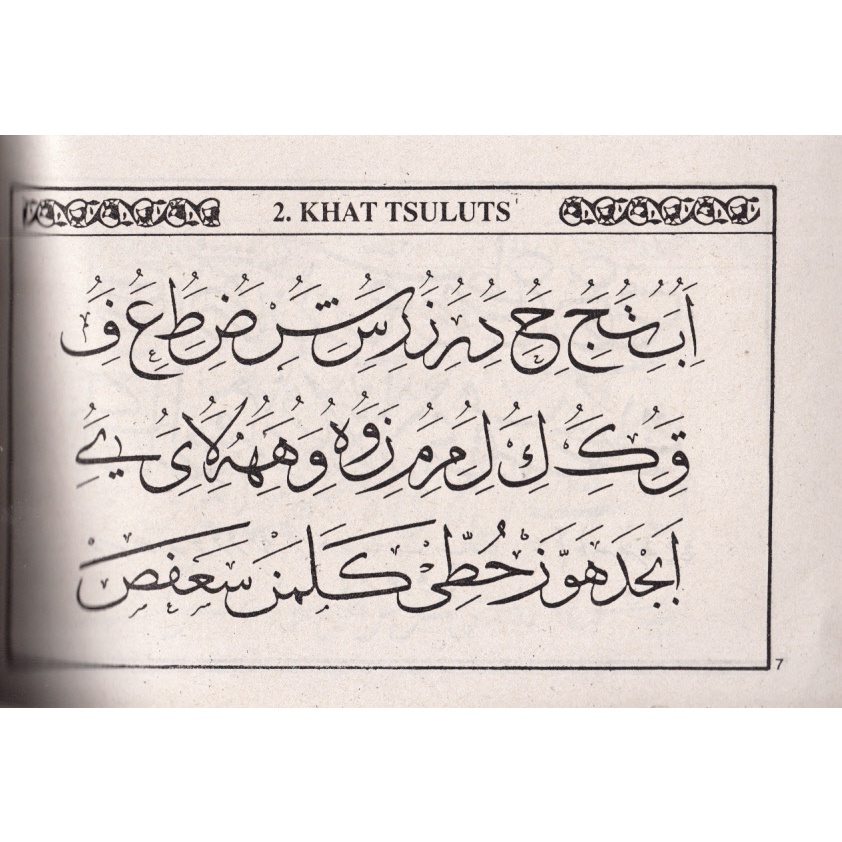 2. KHAT TSULUTS'
ا ب ت ج ح د ر ز س ش ض ط ع ف
ق ك ك ل م م ن و ه و ه ه لا ي ي
اَبْجَد هَوَّز حُطِّي كَلَمَن سَعَفَص
7